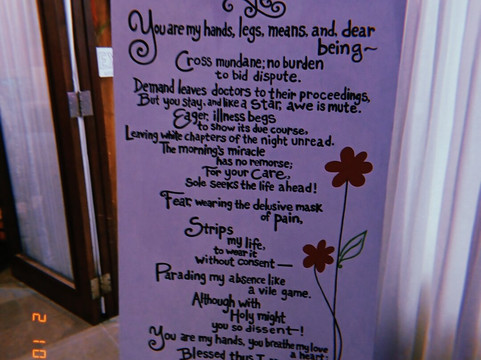 You are my hands, legs, means, and, dear
being~
Cross mundane; no burden
to bid dispute.
Demand leaves doctors to their proceedings,
But you stay, and like a star, awe is mute.
Eager, illness begs
to show its due course,
Leaving white chapters of the night unread.
The morning's miracle
has no remorse;
For your care,,
Sole seeks the life ahead!
Fear, wearing the delusive mask
of pain,
Strips
my life,
to wear it
without consent—
Parading my absence like
a vile game.
Although with
Holy might
you so dissent-!
You are my hands, you breathe my love
a heart;
Blessed thus I
2 10